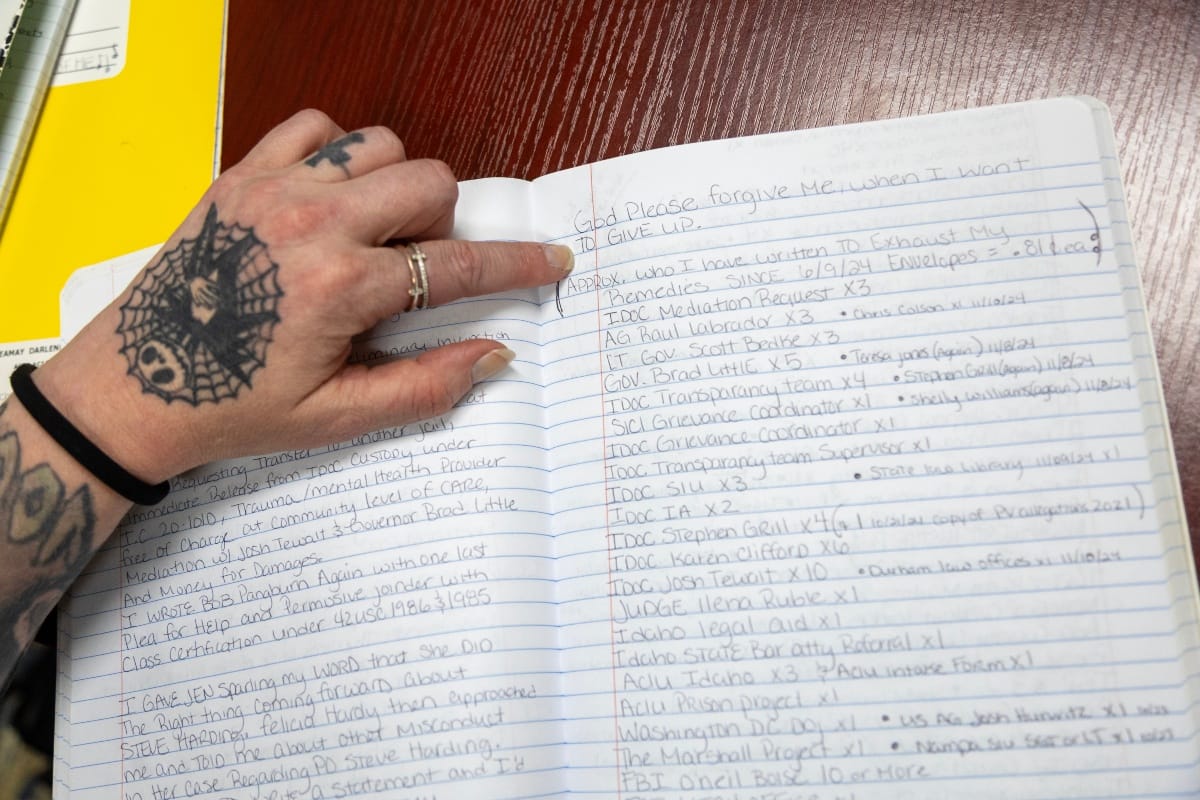 God Please forgive Me, when I want
TO GIVE UP.
(APPROX. who I have written TO Exhaust My
Remedies SINCE 6/9/24 ENVELOPES = .81¢ea.)
IDOC Mediation Request X3
AG Raul Labrador X3 • Chris Colson X1 11/10/24
LT. GOV. Scott Bedke X3
GOV. Brad LittlE X5 • Teresa Jones (Again) 11/8/24
IDOC Transparancy team X4 • Stephen Grill (again) 11/8/24
SICI Grievance Coordinator X1 • Shelly Williams (again) 11/8/24
IDOC Grievance Coordinator X1
IDOC Transparancy team Supervisor X1
IDOC SIU X3 • State law Library 11/09/24 X1
IDOC IA X2
IDOC Stephen GRill X4 (& 1 10/21/24 copy of PV allegations 2021)
IDOC Karen Clifford X6
IDOC Josh Tewalt X10 • Durham law offices X1 11/10/24
JUDGE Ilena Ruble X1
Idaho legal aid X1
Idaho STATE Bar atty Referral X1
Aclu Idaho X3 & Aclu intake Form X1
Aclu PRison project X1
Washington DC DOJ X1 • US AG Josh Hurwitz X1
The Marshall Project X1 • Nampa SIU SGT or LT X1
FBI O'neil Boise 10 or More
Requesting Transfer to another jail,
Immediate Release from IDOC Custody under
I.C 20-101D, Trauma/mental Health Provider
free of Charge at Community level of CARE,
Mediation w/ Josh Tewalt & Governor Brad Little
And Money for Damages.
I WROTE BOB Pangburn Again with one last
Plea for Help and Permissive joinder with
Class Certification under 42 USC 1986 & 1985
I GAVE JEN Sparling my WORD that She DID
The Right thing coming forward About
STEVE HARDING, felicia Hardy then approached
me and Told me about other Misconduct
in Her case Regarding PO Steve Harding.
a Statement and I'd
EAMAY DARLEN